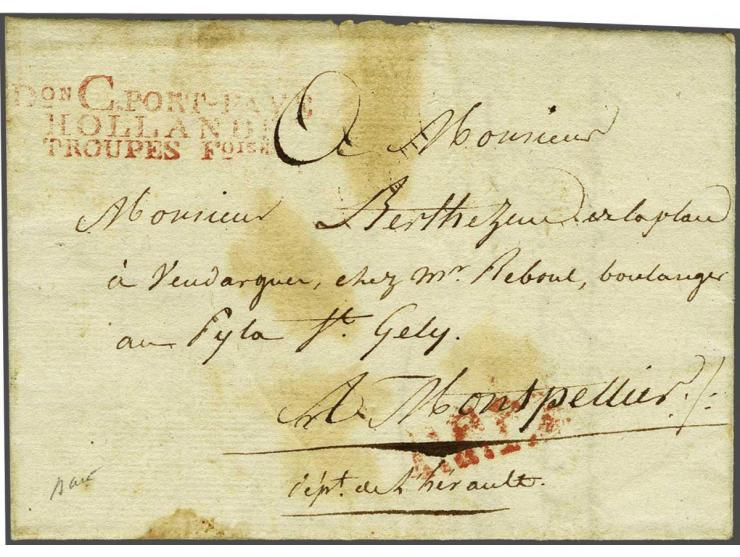 Don C. PORT-PAYÉ
HOLLANDE
TROUPES Foise
A Monsieur
Monsieur Berthezene de laplau
à Vendargues, chez mr. Reboul, boulanger
au Pyla St. Gely.
A Montpellier
dépt. de L'hérault.